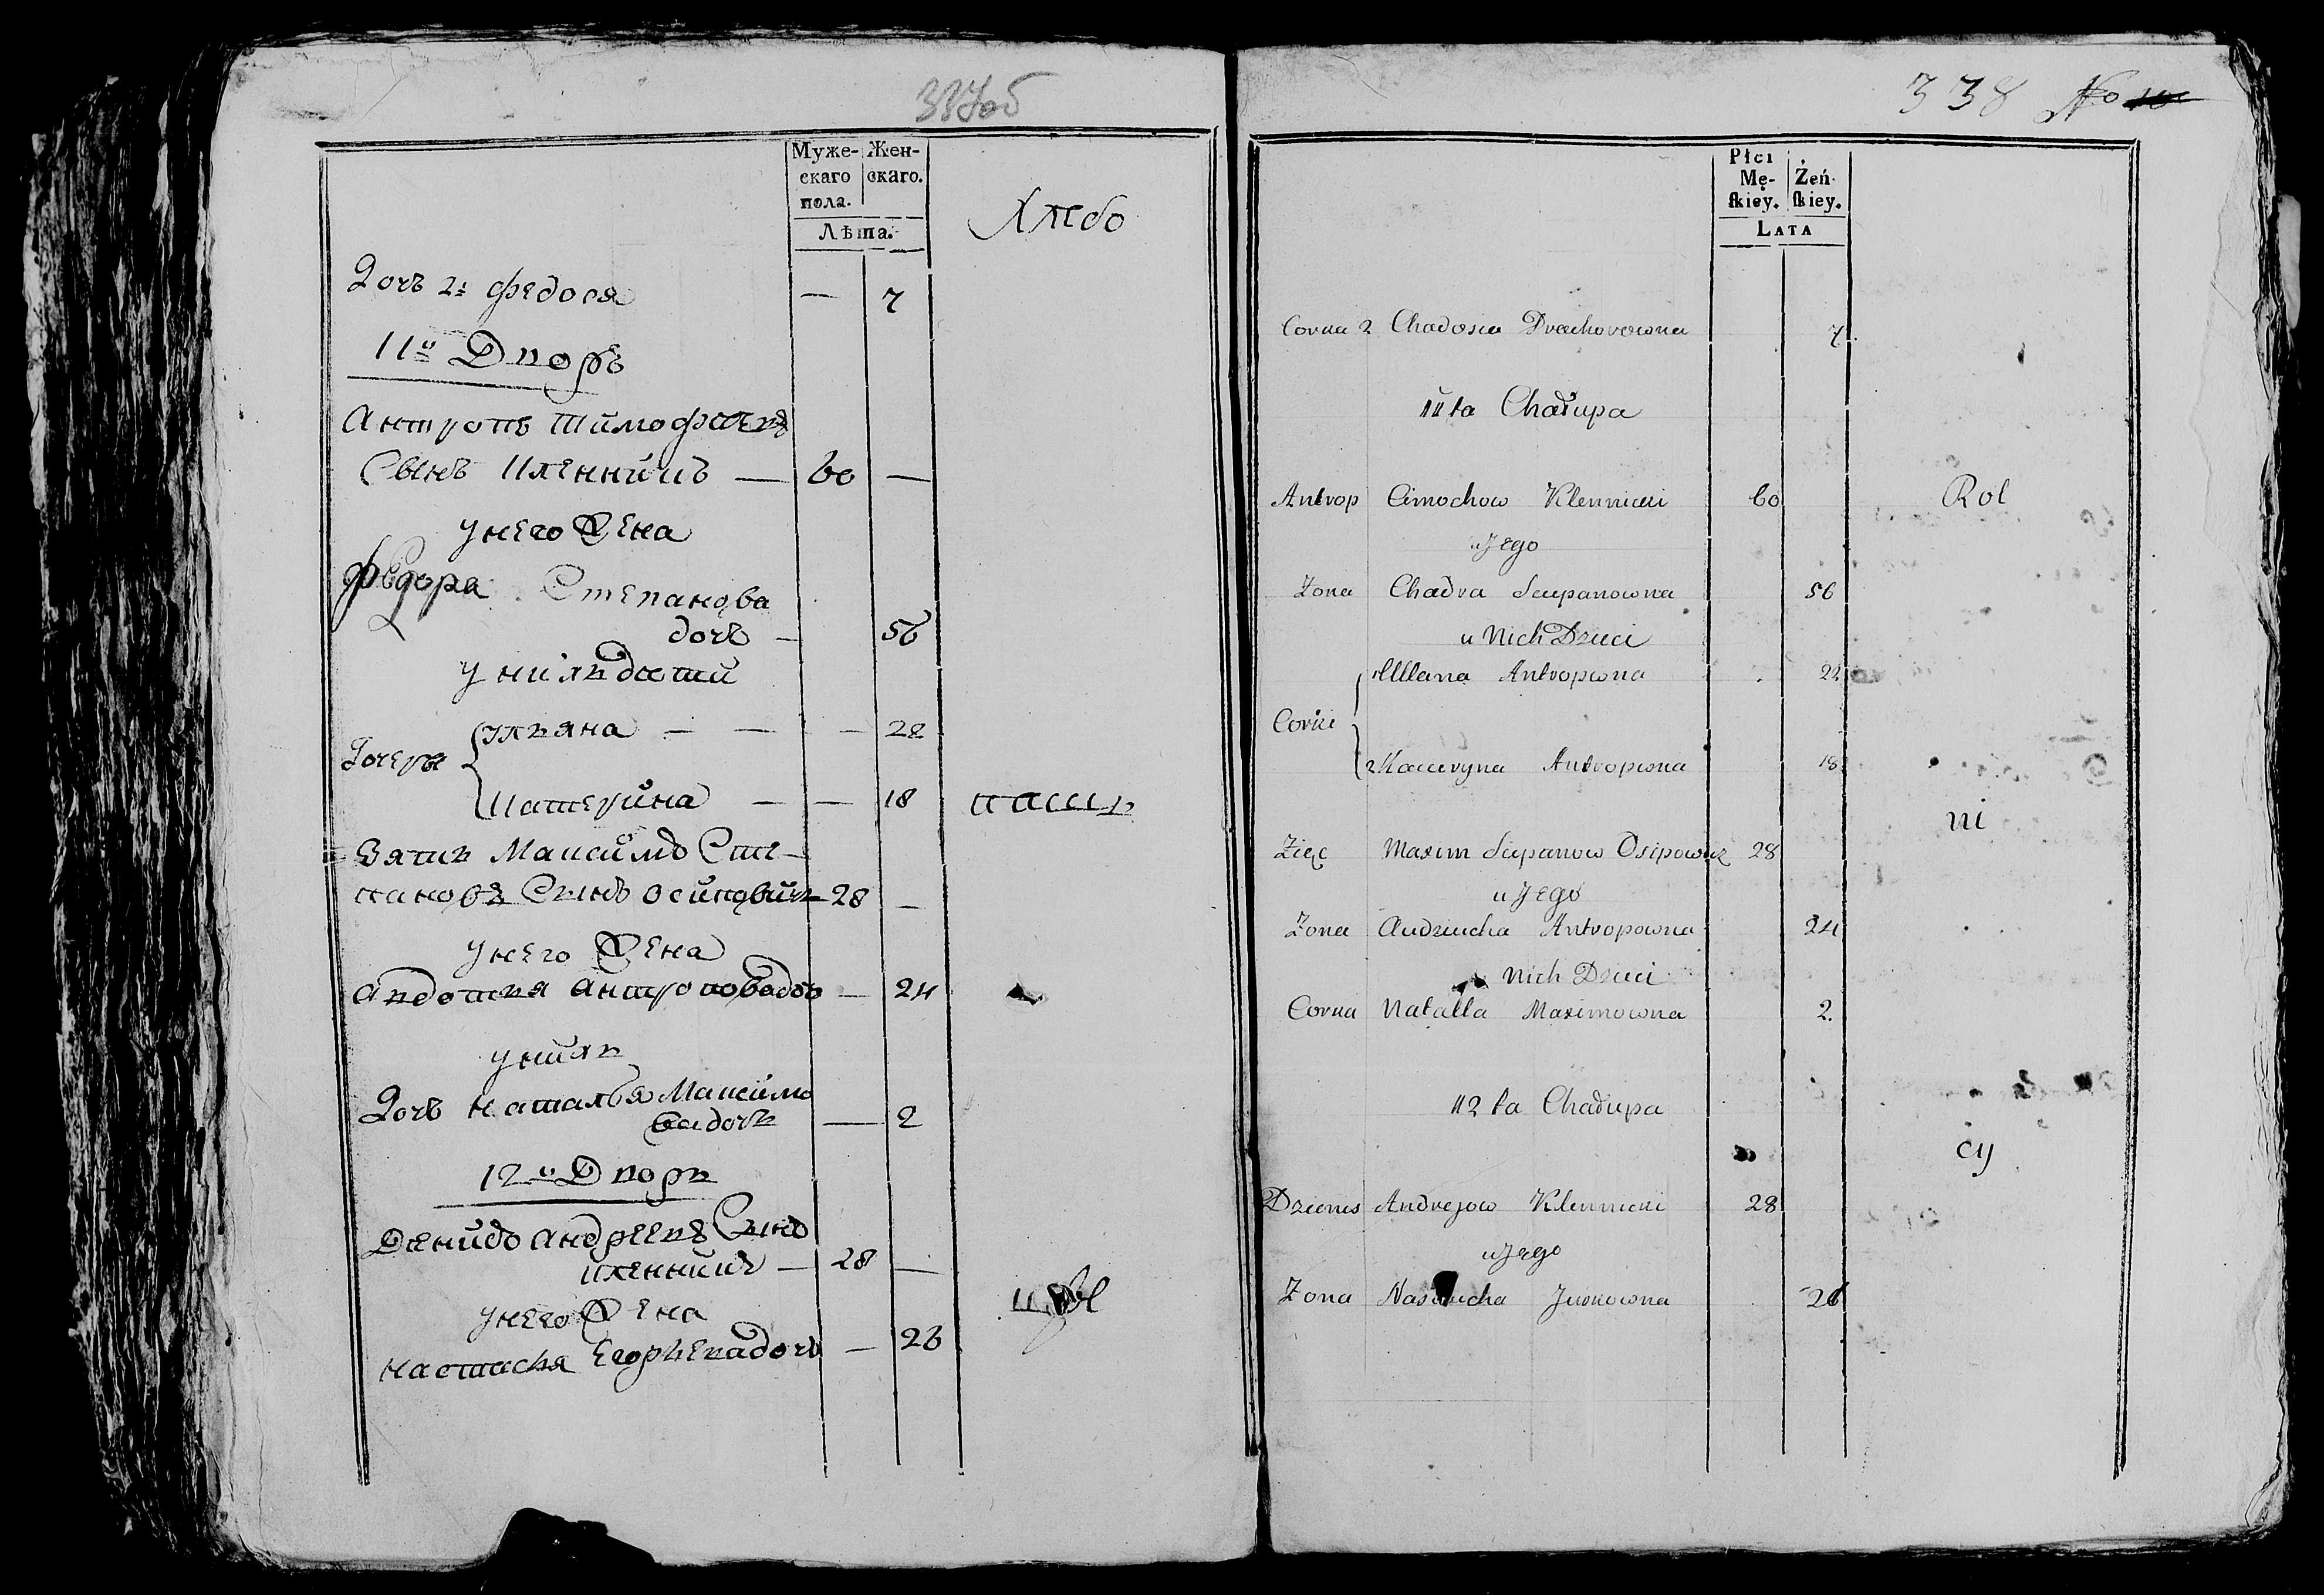 337об
Муже- Жен-
скаго скаго.
пола.
Лѣта.
Хлебо
Дочь 2: федося — 7
11й Дворъ
Антропъ Тимофѣевъ
Сынъ Кленницкъ — 60 —
унего Жена
Федора Степанова
дочь — 56
унихъ дѣти
Ульяна — — — 22
Дочеры
Катерина — — 18
пашъ
Зять Максимъ Сте-
пановъ Сынъ Осиповичъ 28 —
унего Жена
Авдотья Антропова дочь — 24
унихъ
Дочь Наталья Максимо
ва дочь — 2
12й Дворъ
Денисъ Андреевъ Сынъ
Кленницкъ — 28 —
унего Жена
Настасья Егорьева дочь — 26
338 No
Płci
Mę- Żeń-
skiey. skiey.
LATA
Corka 2 Chadosia 7
11ta Chałupa
Antrop Cimochow Klennicki 60 Rol
u Jego
Zona Chadra Sciepanowna 56
u Nich Dzieci
1 Ullana Antropowna 22
Corki
2 Kacieryna Antropowna 18
ni
Zięc Maxim Sciepanow Osipowicz 28
u Jego
Zona Audziucha Antropowna 24
u Nich Dzieci
Corka Natalla Maximowna 2
12ta Chałupa
cy
Dzienis Andrejow Klennicki 28
u Jego
Zona Nastucha Jurkowna 26